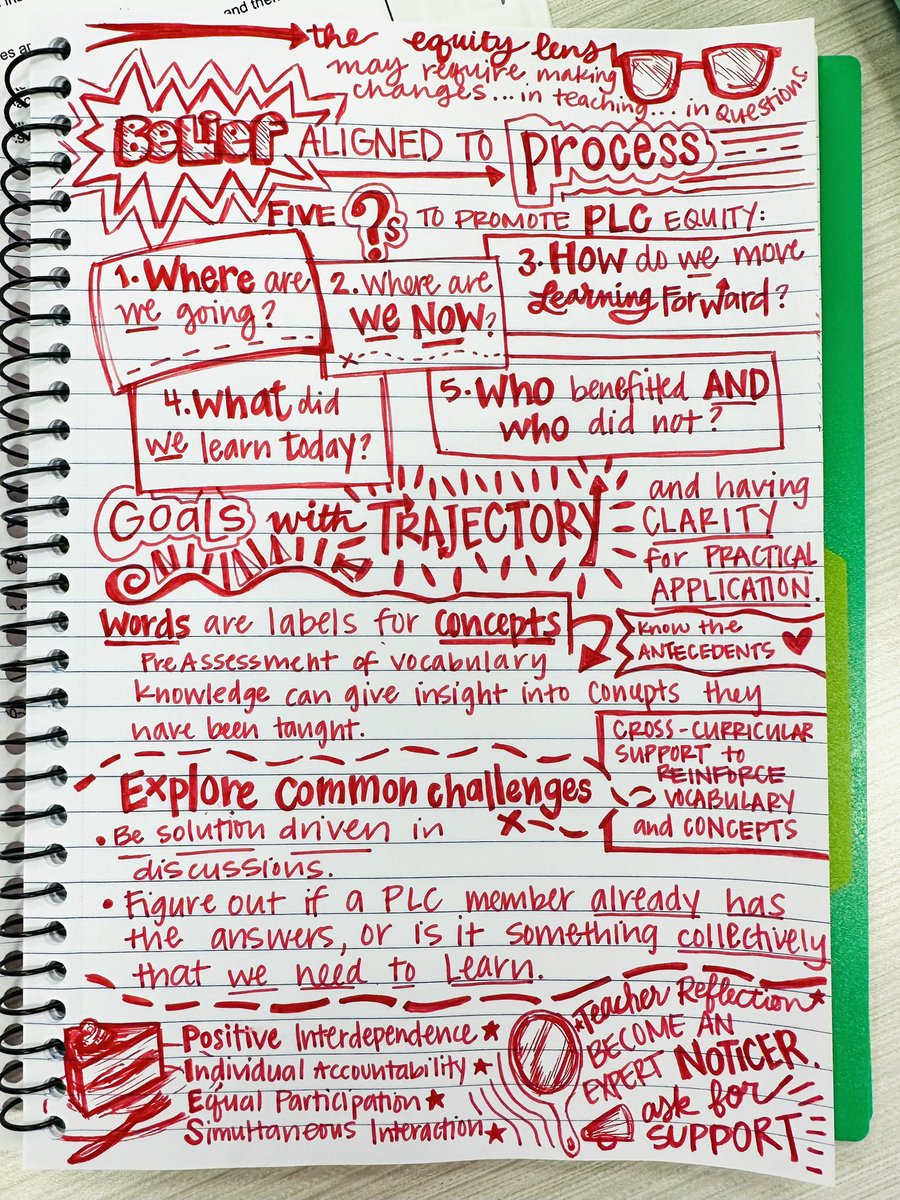 and then
es ar
the equity lens
may require making
changes... in teaching... in Questions.
Belief ALIGNED TO Process
FIVE ?s TO PROMOTE PLC EQUITY:
1. Where are
we going?
2. Where are
we NOW?
3. HOW do we move
Learning Forward?
4. What did
we learn today?
5. Who benefitted AND
who did not?
Goals with TRAJECTORY
and having
CLARITY
for PRACTICAL
APPLICATION.
Words are labels for concepts
Know the
ANTECEDENTS
PreAssessment of vocabulary
knowledge can give insight into concepts they
have been taught.
CROSS-CURRICULAR
SUPPORT to
REINFORCE
VOCABULARY
and CONCEPTS
Explore common challenges
• Be solution driven in
discussions.
• Figure out if a PLC member already has
the answers, or is it something collectively
that we need to Learn.
Positive Interdependence ★
Individual Accountability ★
Equal Participation ★
Simultaneous Interaction ★
★Teacher Reflection★
BECOME AN
EXPERT NOTICER.
ask for
SUPPORT